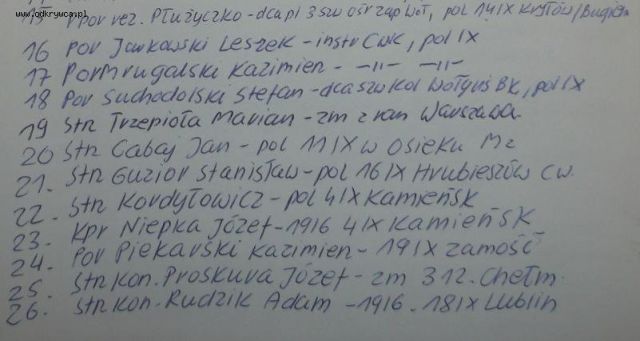 www.odkrywca.pl
15 Ppor rez. Płużyczko - dca pl 3 szw ośr zap Woł, pol 14 IX Kryłów/Bugiem
16 Por Jankowski Leszek - instr CWK, pol IX
17 Por Mrugalski Kazimierz - -11- -11-
18 Por Suchodolski Stefan - dca szw kol Wołyńs BK, pol IX
19 Str Trzepiota Marian - zm z ran Warszawa
20 Str Gabaj Jan - pol 11 IX w Osieku Mz
21. Str Guzior Stanisław - pol 16 IX Hrubieszów cw.
22. Str Kordyłowicz - pol 4 IX Kamieńsk
23. Kpr Niepka Józef - 1916 4 IX Kamieńsk
24. Por Piekarski Kazimierz - 19 IX Zamość
25. Str Kon. Proskura Józef - zm 3 12. Chełm.
26. Str Kon. Rudzik Adam - 1916. 18 IX Lublin